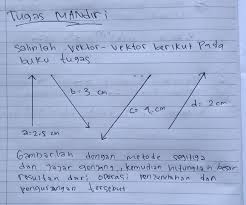 Tugas MANdiri
Salinlah vektor-vektor berikut pada
buku tugas
b = 3 cm
d = 2 cm
c = 4 cm
a = 2,5 cm
Gambarlah dengan metode segitiga
dan jajar genjang, kemudian hitunglah besar
resultan dari operasi penjumlahan dan
pengurangan tersebut